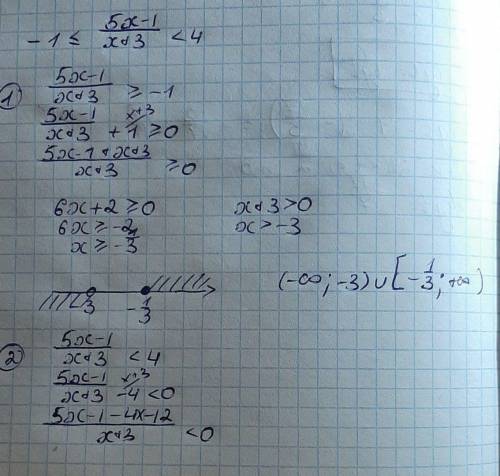 -1 ≤ (5x-1)/(x+3) < 4
① (5x-1)/(x+3) ≥ -1
(5x-1)/(x+3) + 1 ≥ 0 x+3
(5x-1+x+3)/(x+3) ≥ 0
6x+2 ≥ 0 x+3 > 0
6x ≥ -2 x > -3
x ≥ -1/3
-3 -1/3 (-∞; -3) ∪ [-1/3; +∞)
② (5x-1)/(x+3) < 4
(5x-1)/(x+3) - 4 < 0 x+3
(5x-1-4x-12)/(x+3) < 0